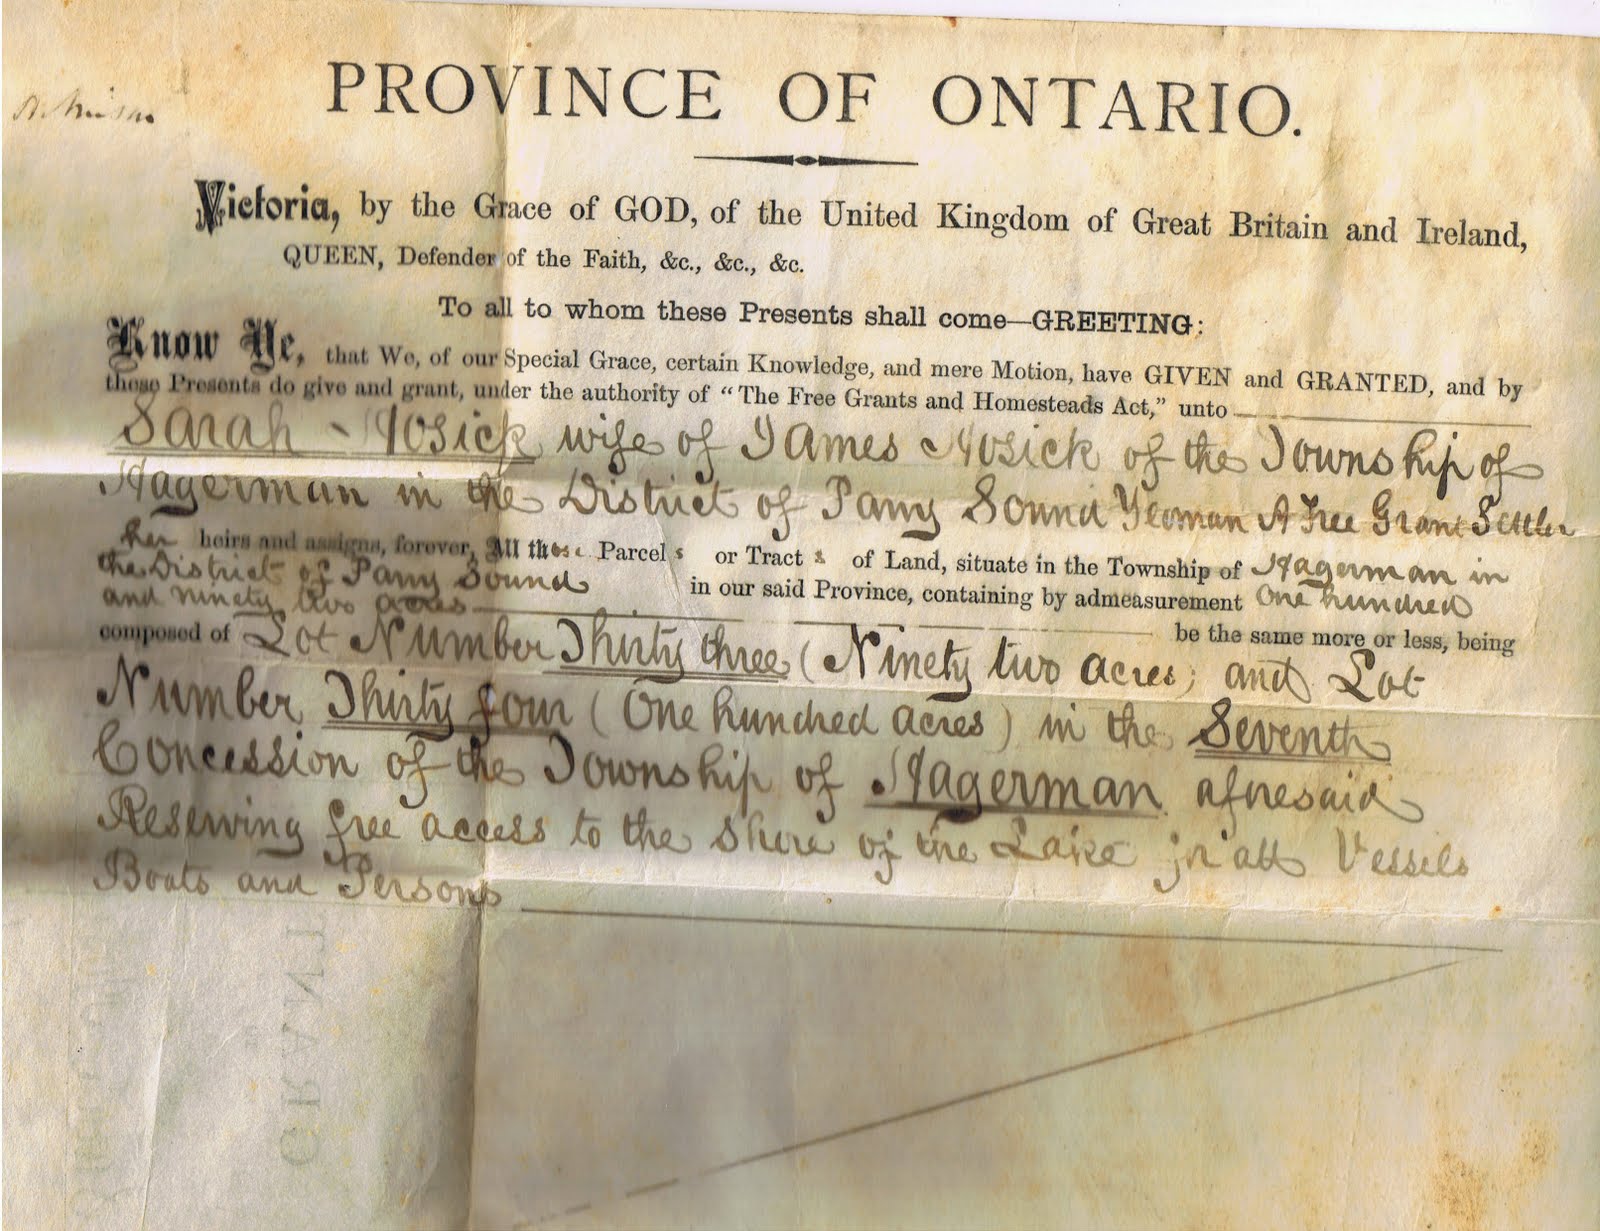 PROVINCE OF ONTARIO.
Victoria, by the Grace of GOD, of the United Kingdom of Great Britain and Ireland,
QUEEN, Defender of the Faith, &c., &c., &c.
To all to whom these Presents shall come—GREETING:
Know Ye, that We, of our Special Grace, certain Knowledge, and mere Motion, have GIVEN and GRANTED, and by
these Presents do give and grant, under the authority of "The Free Grants and Homesteads Act," unto
Sarah Nosick wife of James Nosick of the Township of
Hagerman in the District of Parry Sound Yeoman A Free Grant Settler
her heirs and assigns, forever, All those Parcels or Tracts of Land, situate in the Township of Hagerman in
the District of Parry Sound in our said Province, containing by admeasurement One hundred
and ninety two acres
be the same more or less, being
composed of Lot Number Thirty three (Ninety two acres) and Lot
Number Thirty four (One hundred acres) in the Seventh
Concession of the Township of Hagerman aforesaid
Reserving free access to the shore of the Lake for all Vessels
Boats and Persons
GRANT